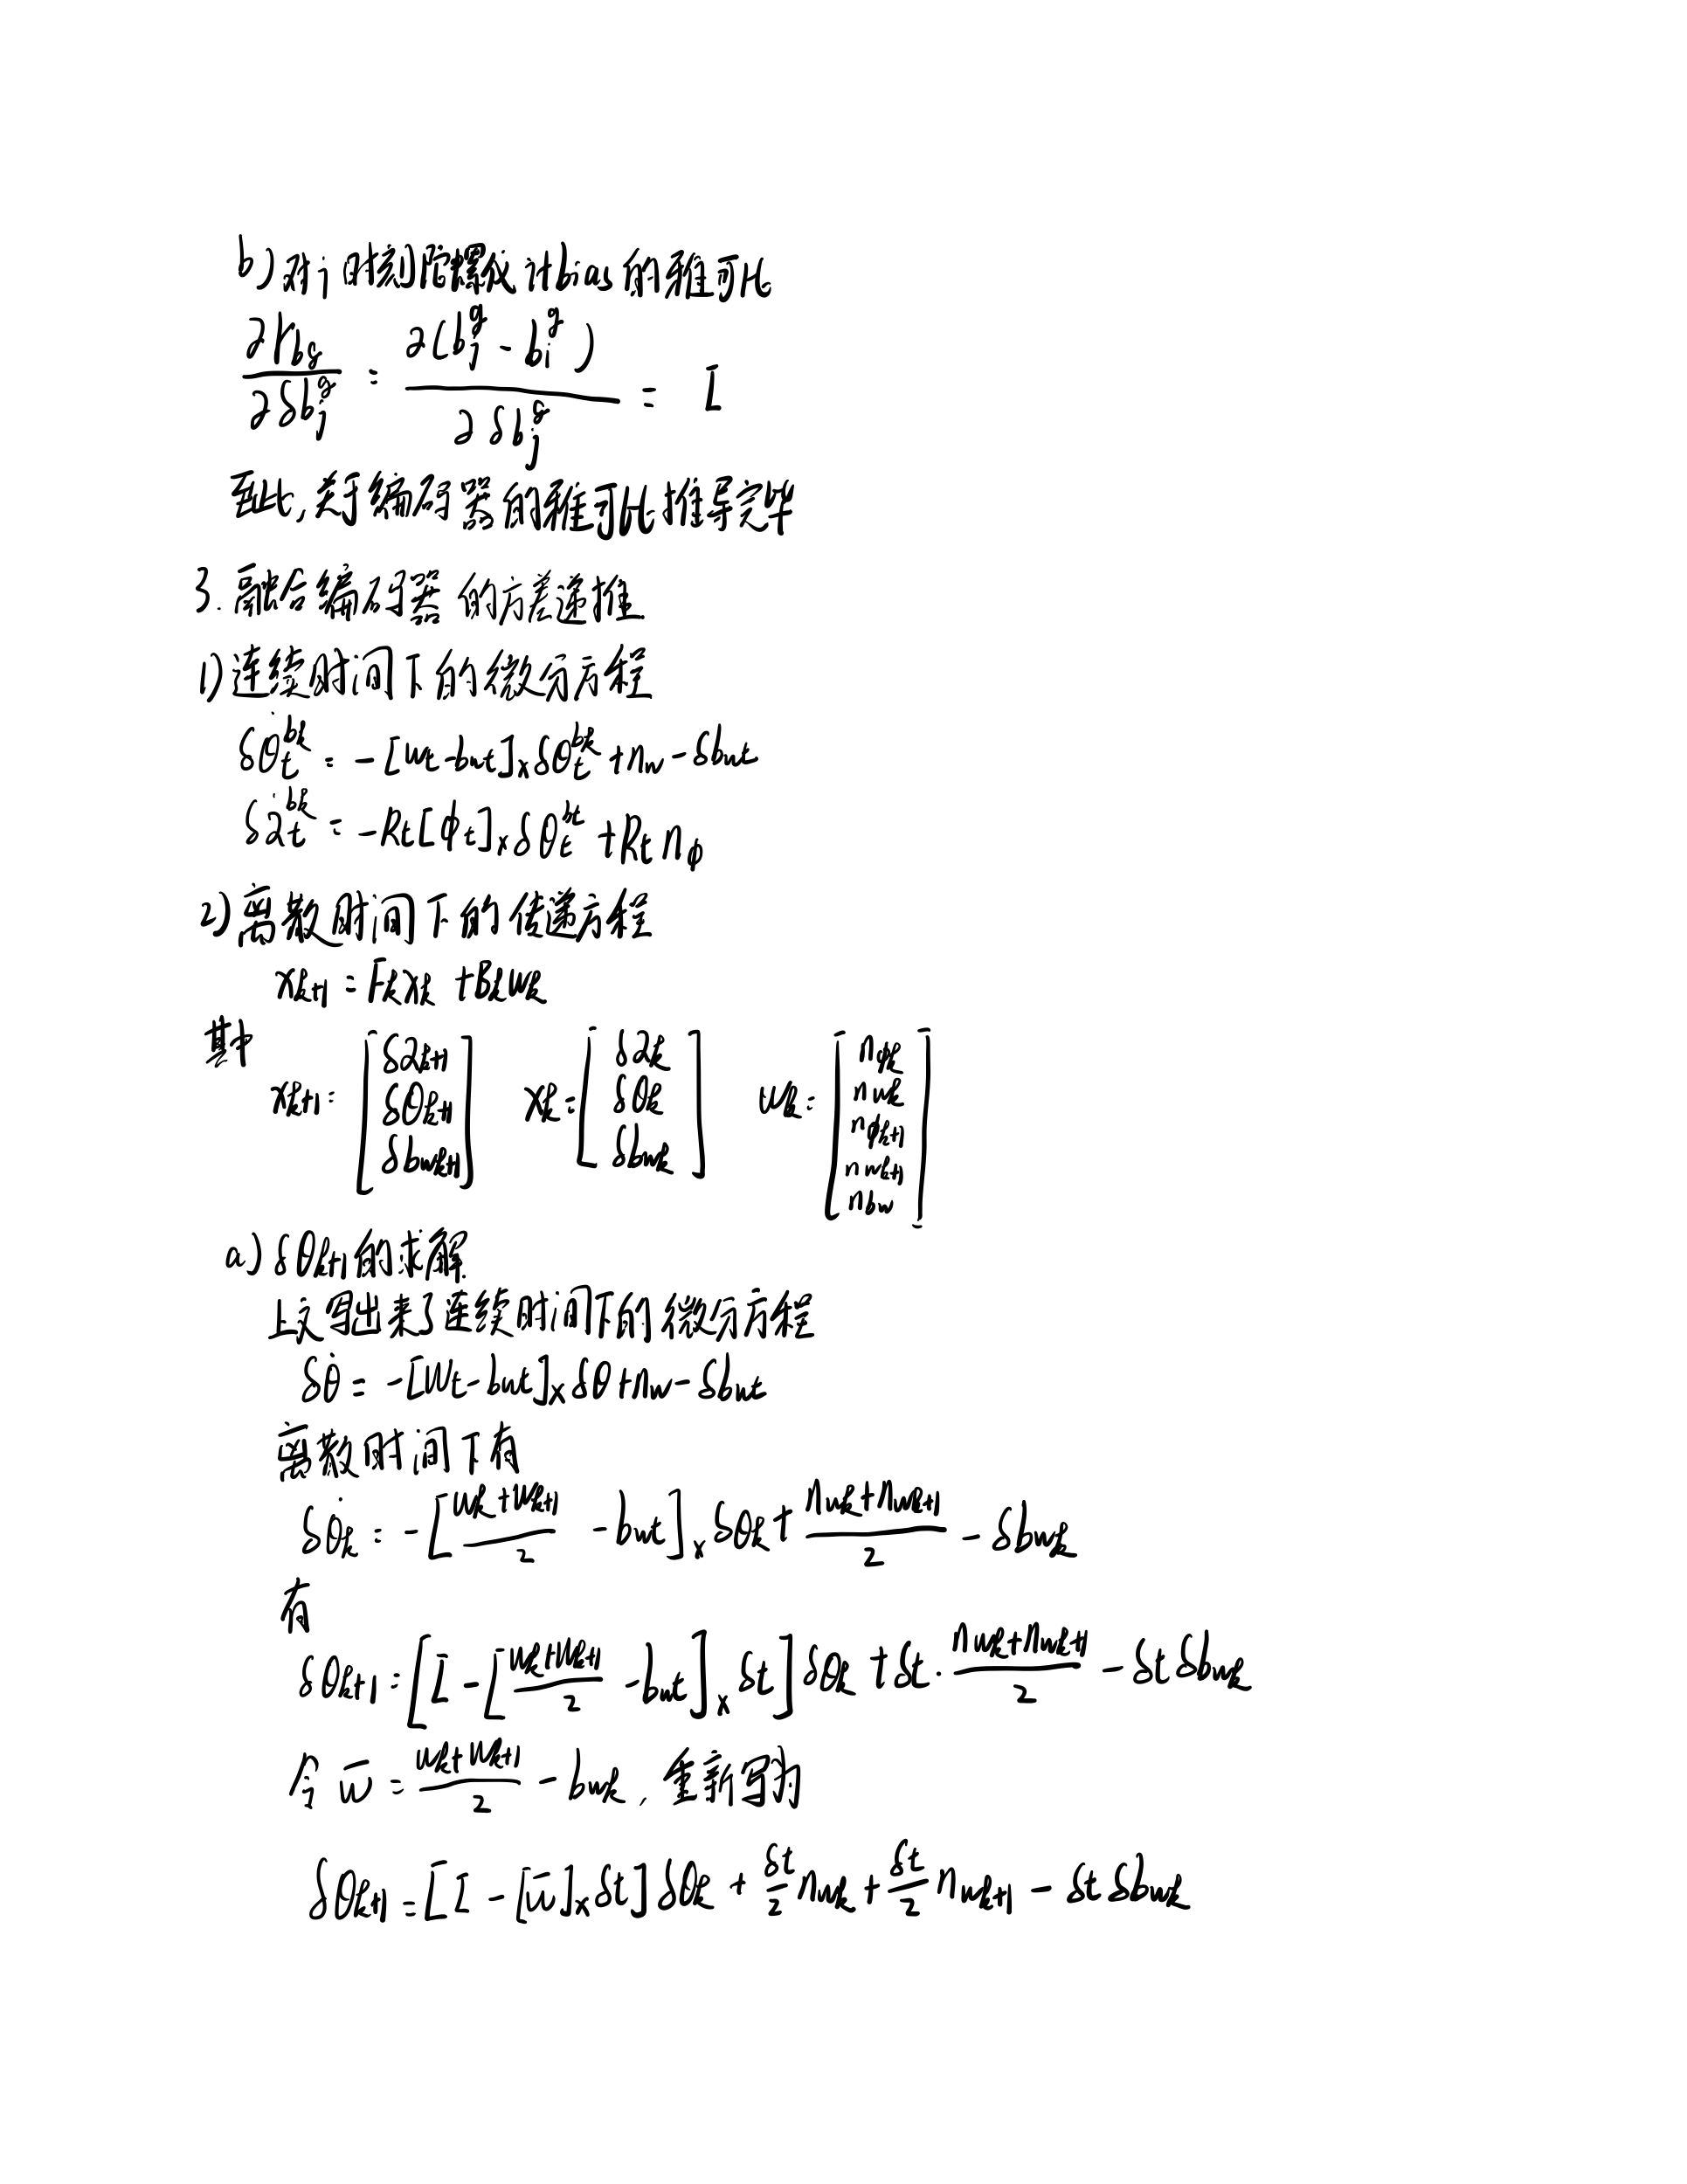 b)对j时刻陀螺仪计bias的雅可比
∂r_{bg}/∂δb_j^g = ∂(b_j^g - b_i^g)/∂δb_j^g = I
至此,关于编码器的雅可比推导完毕
3.融合编码器的方差递推
1)连续时间下的微分方程
δθ̇_t^{bk} = -[w_t-b_{wt}]_×δθ_t^{bk}+n_w-δb_{wt}
δα̇_t^{bk} = -R_t[ϕ_t]_×δθ_t^{bt}+R_t n_ϕ
2)离散时间下的传递方程
x_{k+1} = F_k x_k + B_k w_k
其中 x_{k+1} = [δα_{k+1} δθ_{k+1} δb_{wk+1}] x_k = [δα_k δθ_k δb_{wk}] w_k = [n_{ϕk} n_{wk} n_{ϕk+1} n_{wk+1} n_{bw}]
a)δθ_{k+1}的求解
上文写出来了连续时间下的微分方程
δθ̇ = -[w_t-b_{wt}]_×δθ+n_w-δb_{wt}
离散时间下有
δθ̇_k = -[(w_k+w_{k+1})/2 - b_{wt}]_× δθ_k + (n_{wk}+n_{wk+1})/2 - δb_{wk}
有
δθ_{k+1} = [I-[(w_k+w_{k+1})/2 - b_{wt}]_× δt]δθ_k + δt·(n_{wk}+n_{wk+1})/2 - δtδb_{wk}
令 w̅ = (w_k+w_{k+1})/2 - b_{wk}, 重新写为
δθ_{k+1} = [I-[w̅]_×δt]δθ_k + δt/2 n_{wk} + δt/2 n_{wk+1} - δtδb_{wk}